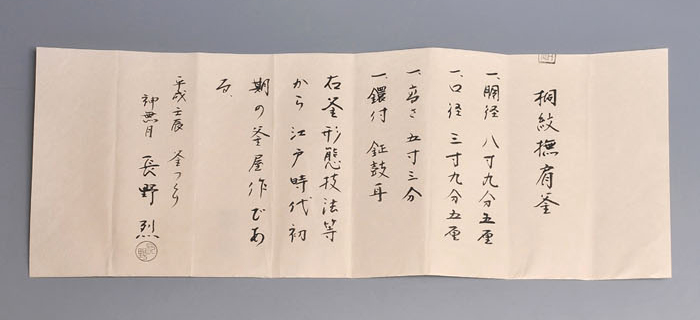 桐紋撫肩釜
一、胴径 八寸九分五厘
一、口径 三寸九分五厘
一、高さ 五寸三分
一、鐶付 鉦鼓耳
右釜形態技法等
から江戸時代初
期の釜屋作であ
る、
平成壬辰 釜つくり
神無月 長野 烈